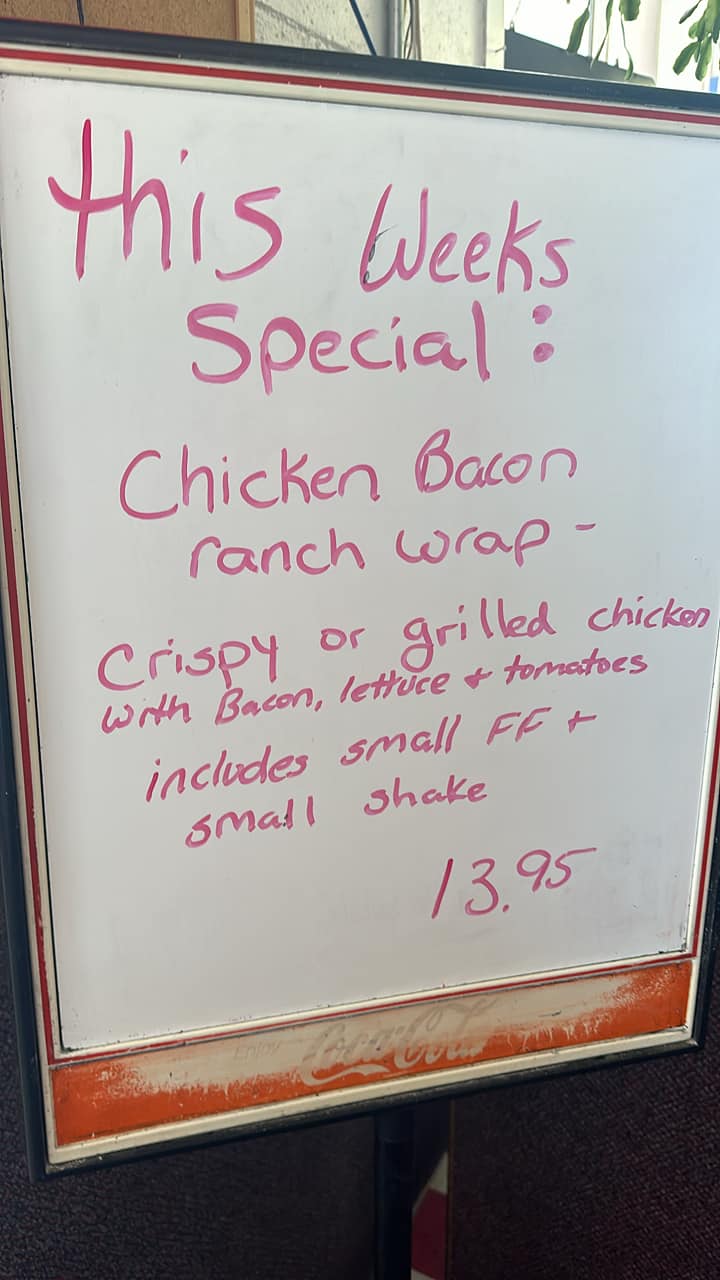 this Weeks
Special :
Chicken Bacon
ranch wrap -
Crispy or grilled chicken
with Bacon, lettuce + tomatoes
includes small FF +
small shake
13.95
ENJOY
Coca-Cola